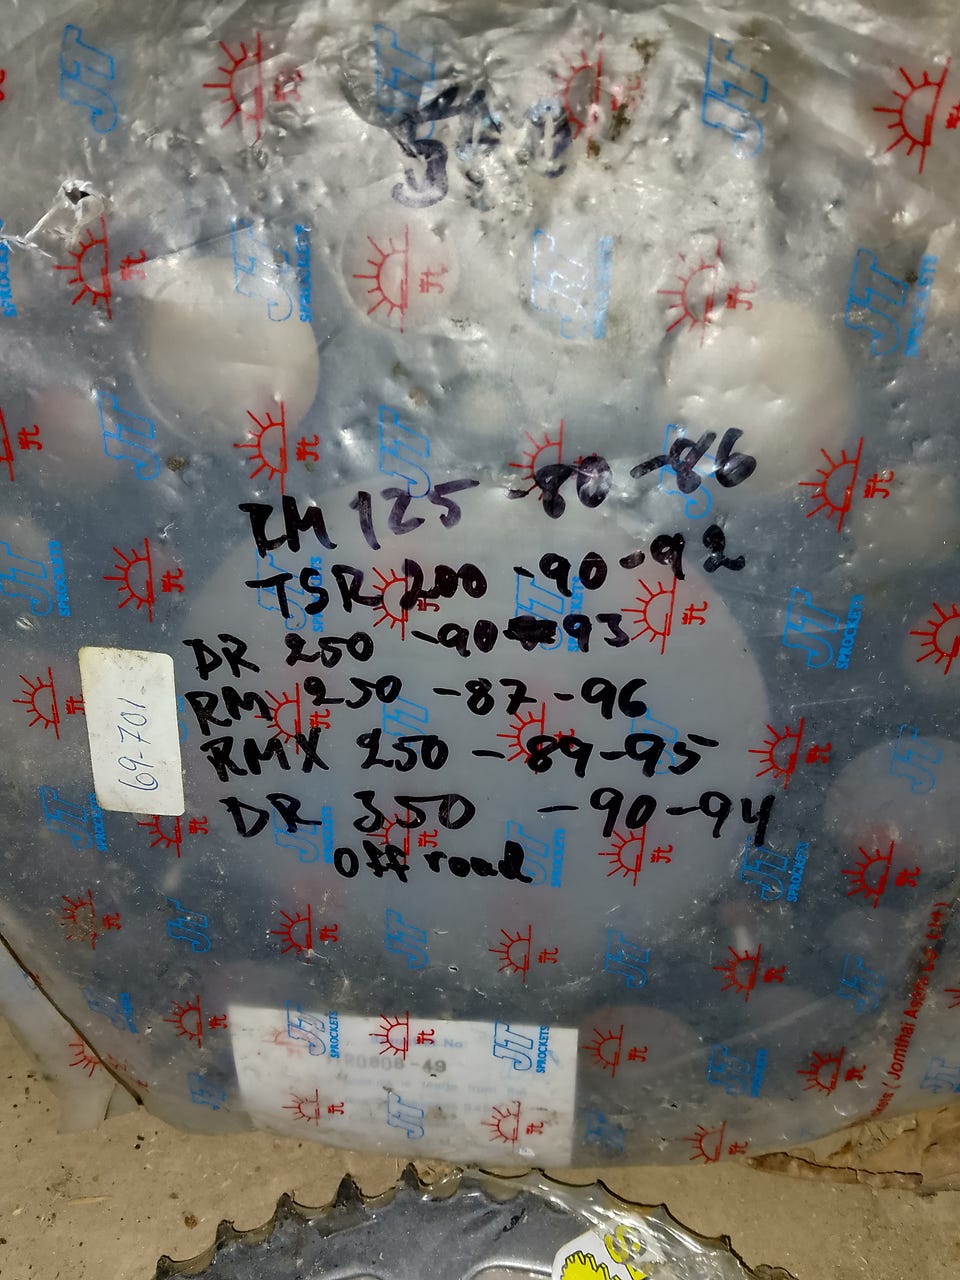 500
RM 125 -80 -86
TSR 200 -90-92
DR 250 -90-93
RM 250 -87-96
RMX 250 -89-95
DR 350 -90-94
Off road
69-701
JT
SPROCKETS
No:
R0808-49
teeth from
(Jomthai Asahi